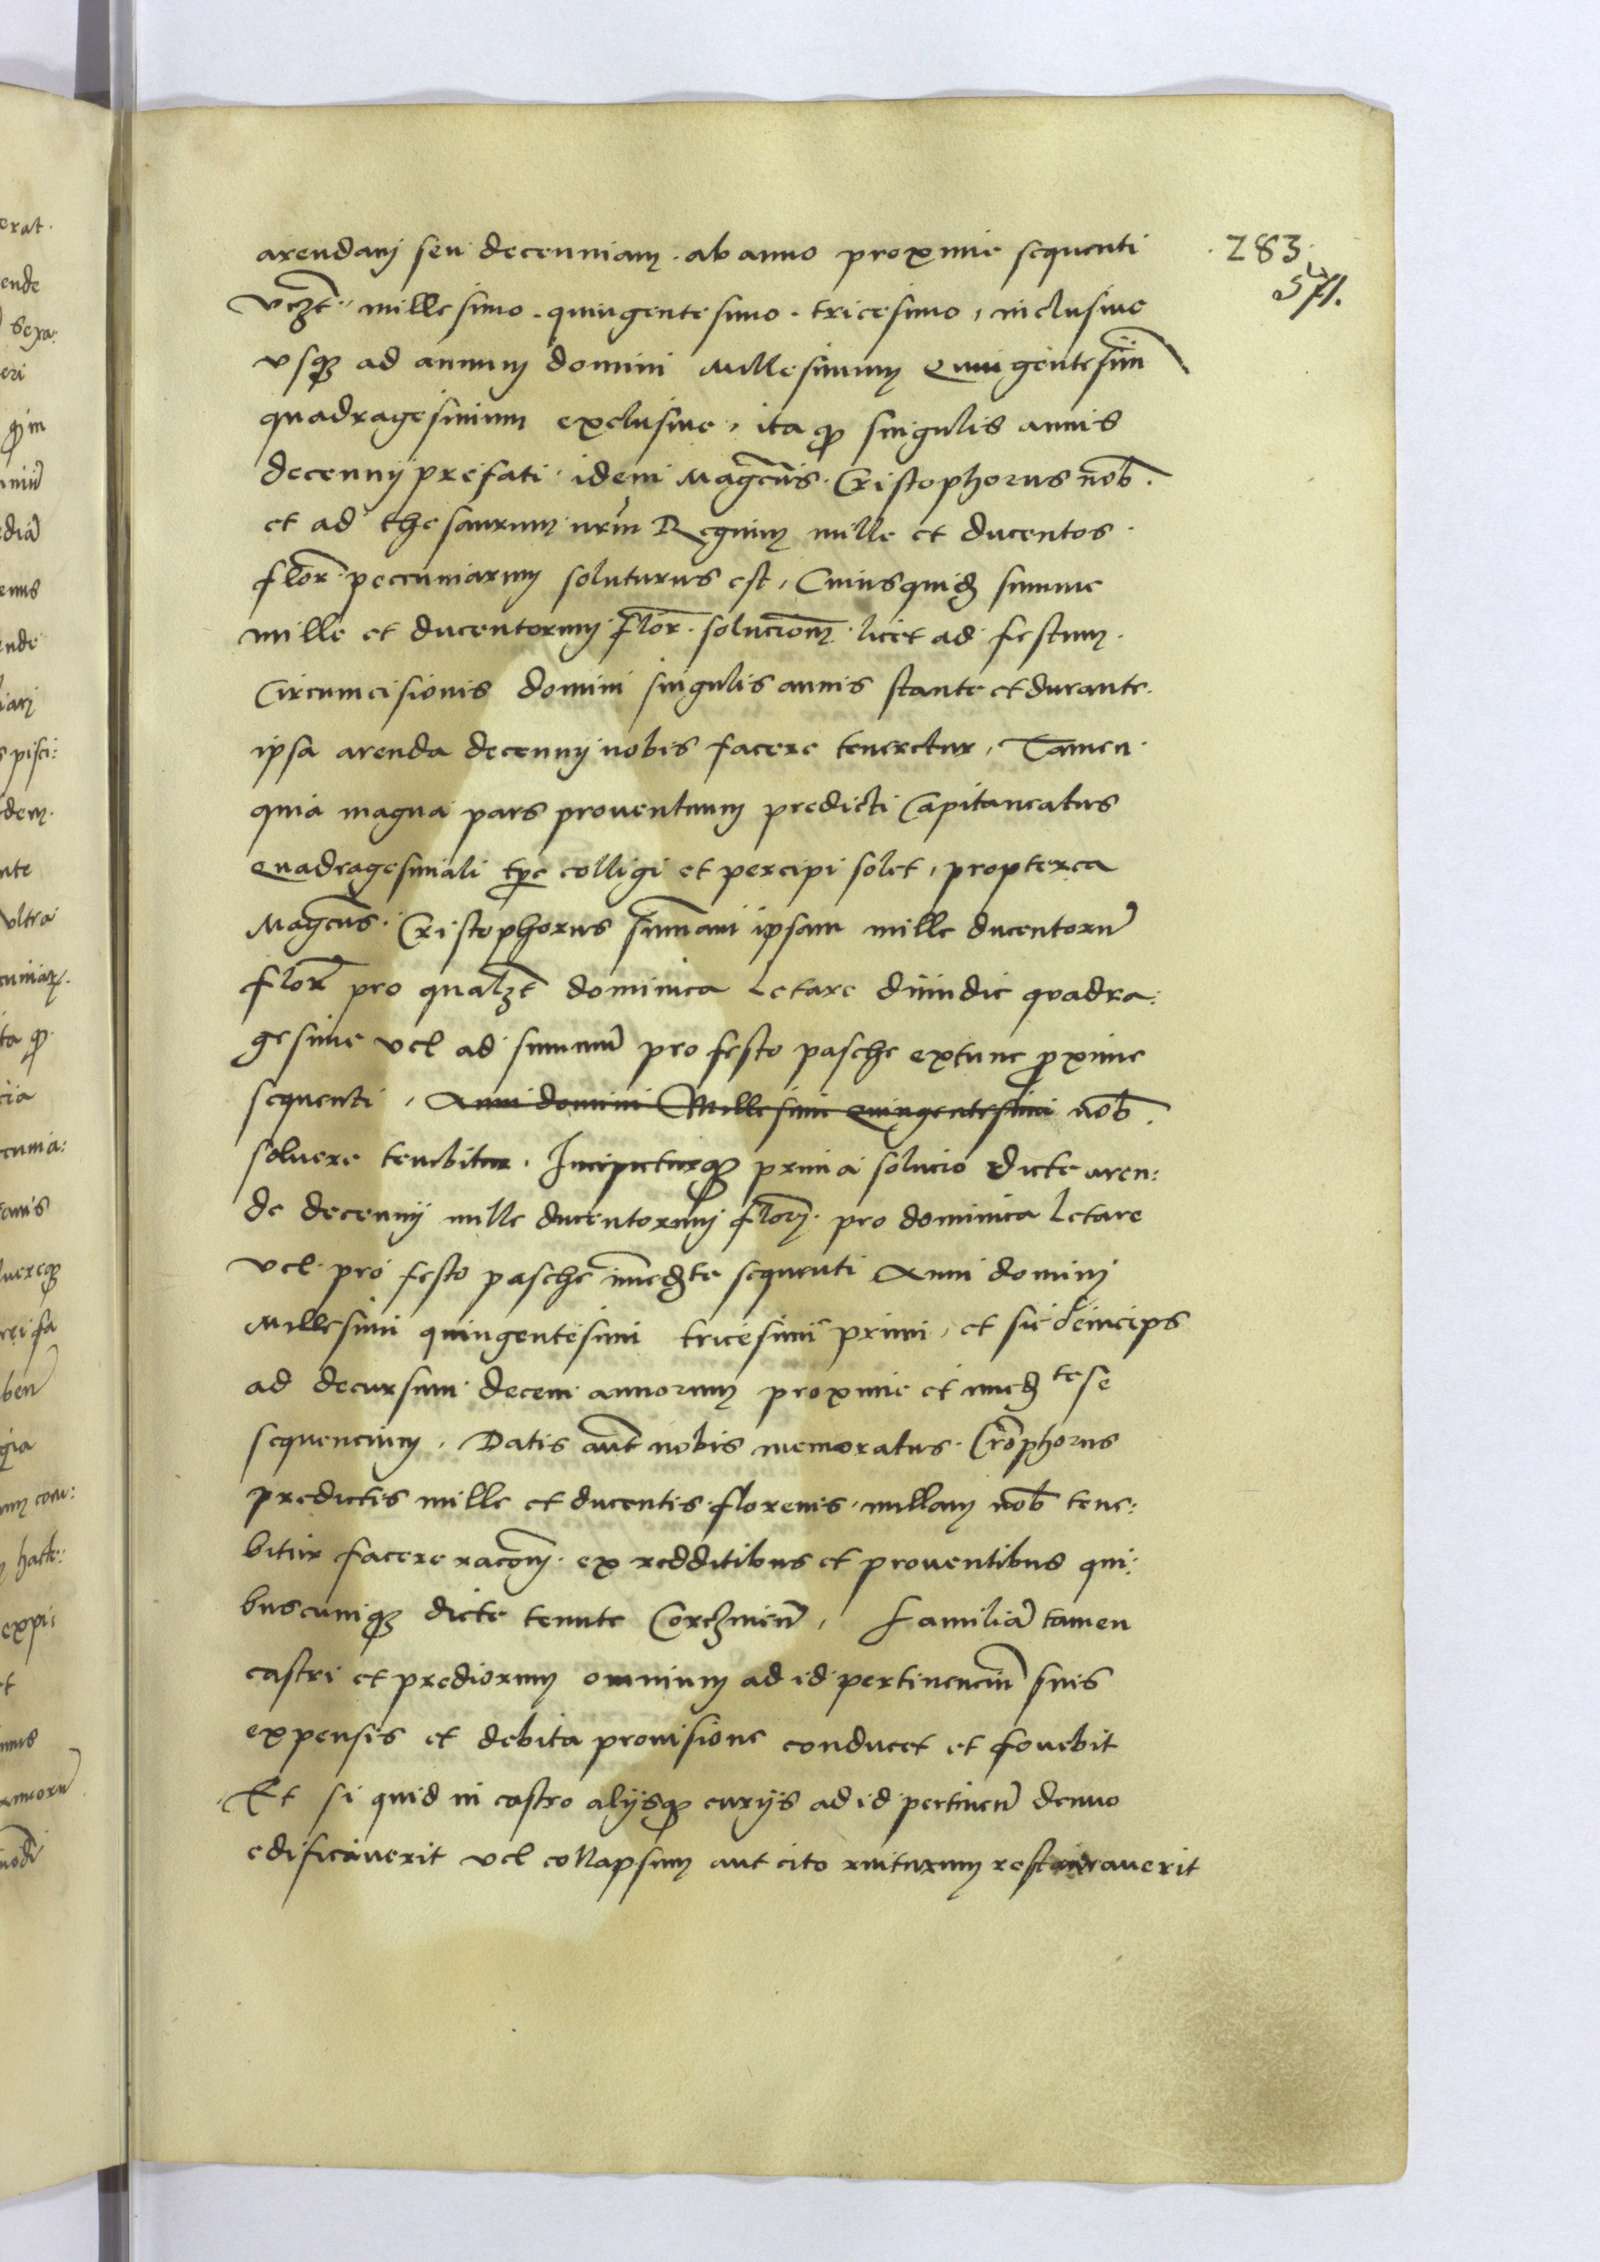 arendam seu decenniam ab anno proxime sequenti
vczt millesimo quingentesimo tricesimo, inclusiue
vsq ad annum domini Millesimum Quingentesim
quadragesimum exclusiue, ita q singulis annis
decennij prefati idem Magcus Cristophorus nob.
et ad thesaurum nrm Regium mille et ducentos
flor peccuniarum soluturus est, Cuiusquid summe
mille et ducentorum flor solucionem licet ad festum
Circumcisionis domini singulis annis stante et durante
ipsa arenda decennij nobis facere teneretur, Tamen
quia magna pars prouentuum predicti Capitaneatus
Quadragesimali tpe colligi et percipi solet, propterea
Magcus Cristophorus summam ipsam mille ducentorum
flor pro qualzt dominica Letare quadra:
gesime vel ad summum pro festo pasche extunc proxime
sequenti, Anni domini Millesimi Quingentesimi nob.
soluere tenebitur. Incipieturq prima solucio dicte aren:
de decennij mille ducentorum flor pro dominica Letare
vel pro festo pasche immedte sequenti Anni domini
Millesimi quingentesimi tricesimi primi, et sic deinceps
ad decursum decem annorum proxime et immedte se
sequencium. Datis aut nobis memoratus Crophorus
predictis mille et ducentis florenis nullam nob tene:
bitur facere raconem ex redditibus et prouentibus qui:
buscunq dicte tenute Corczinen, Familiam tamen
castri et prediorum omnium ad id pertinencium suis
expensis et debita prouisione conducet et fouebit
Et si quid in castro alijsq curijs ad id pertinen denuo
edificauerit vel collapsum aut cito ruiturum restaurauerit
283